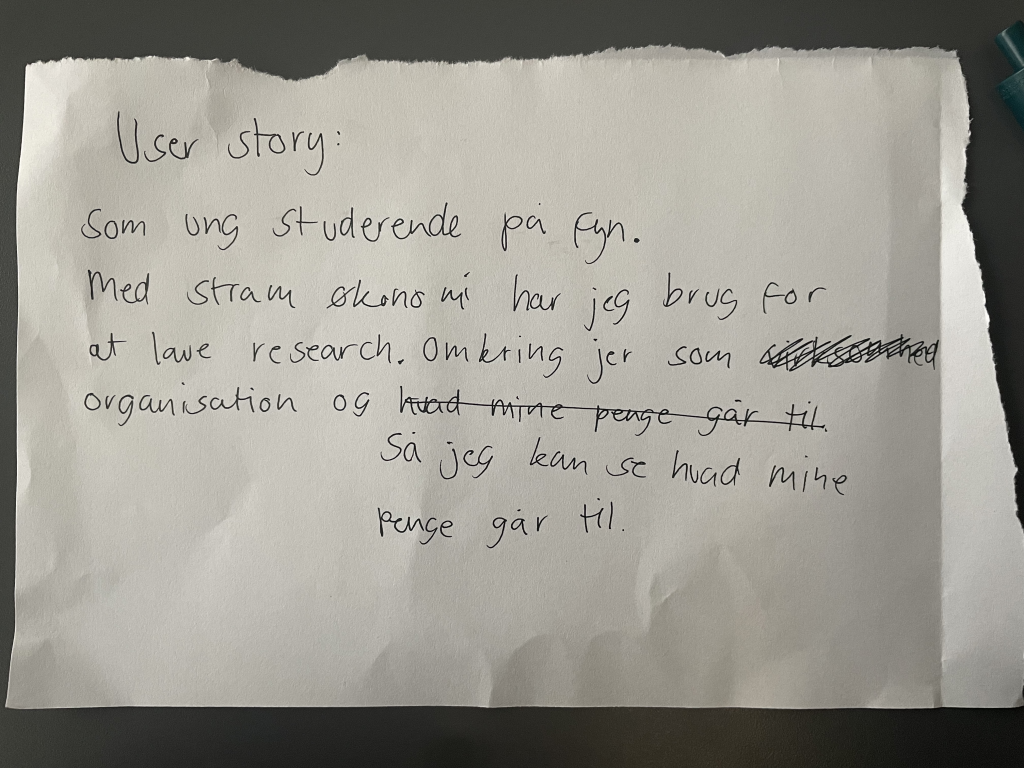 User story:
Som ung studerende på Fyn.
Med stram økonomi har jeg brug for
at lave research. Omkring jer som
organisation og hvad mine penge går til.
Så jeg kan se hvad mine
penge går til.